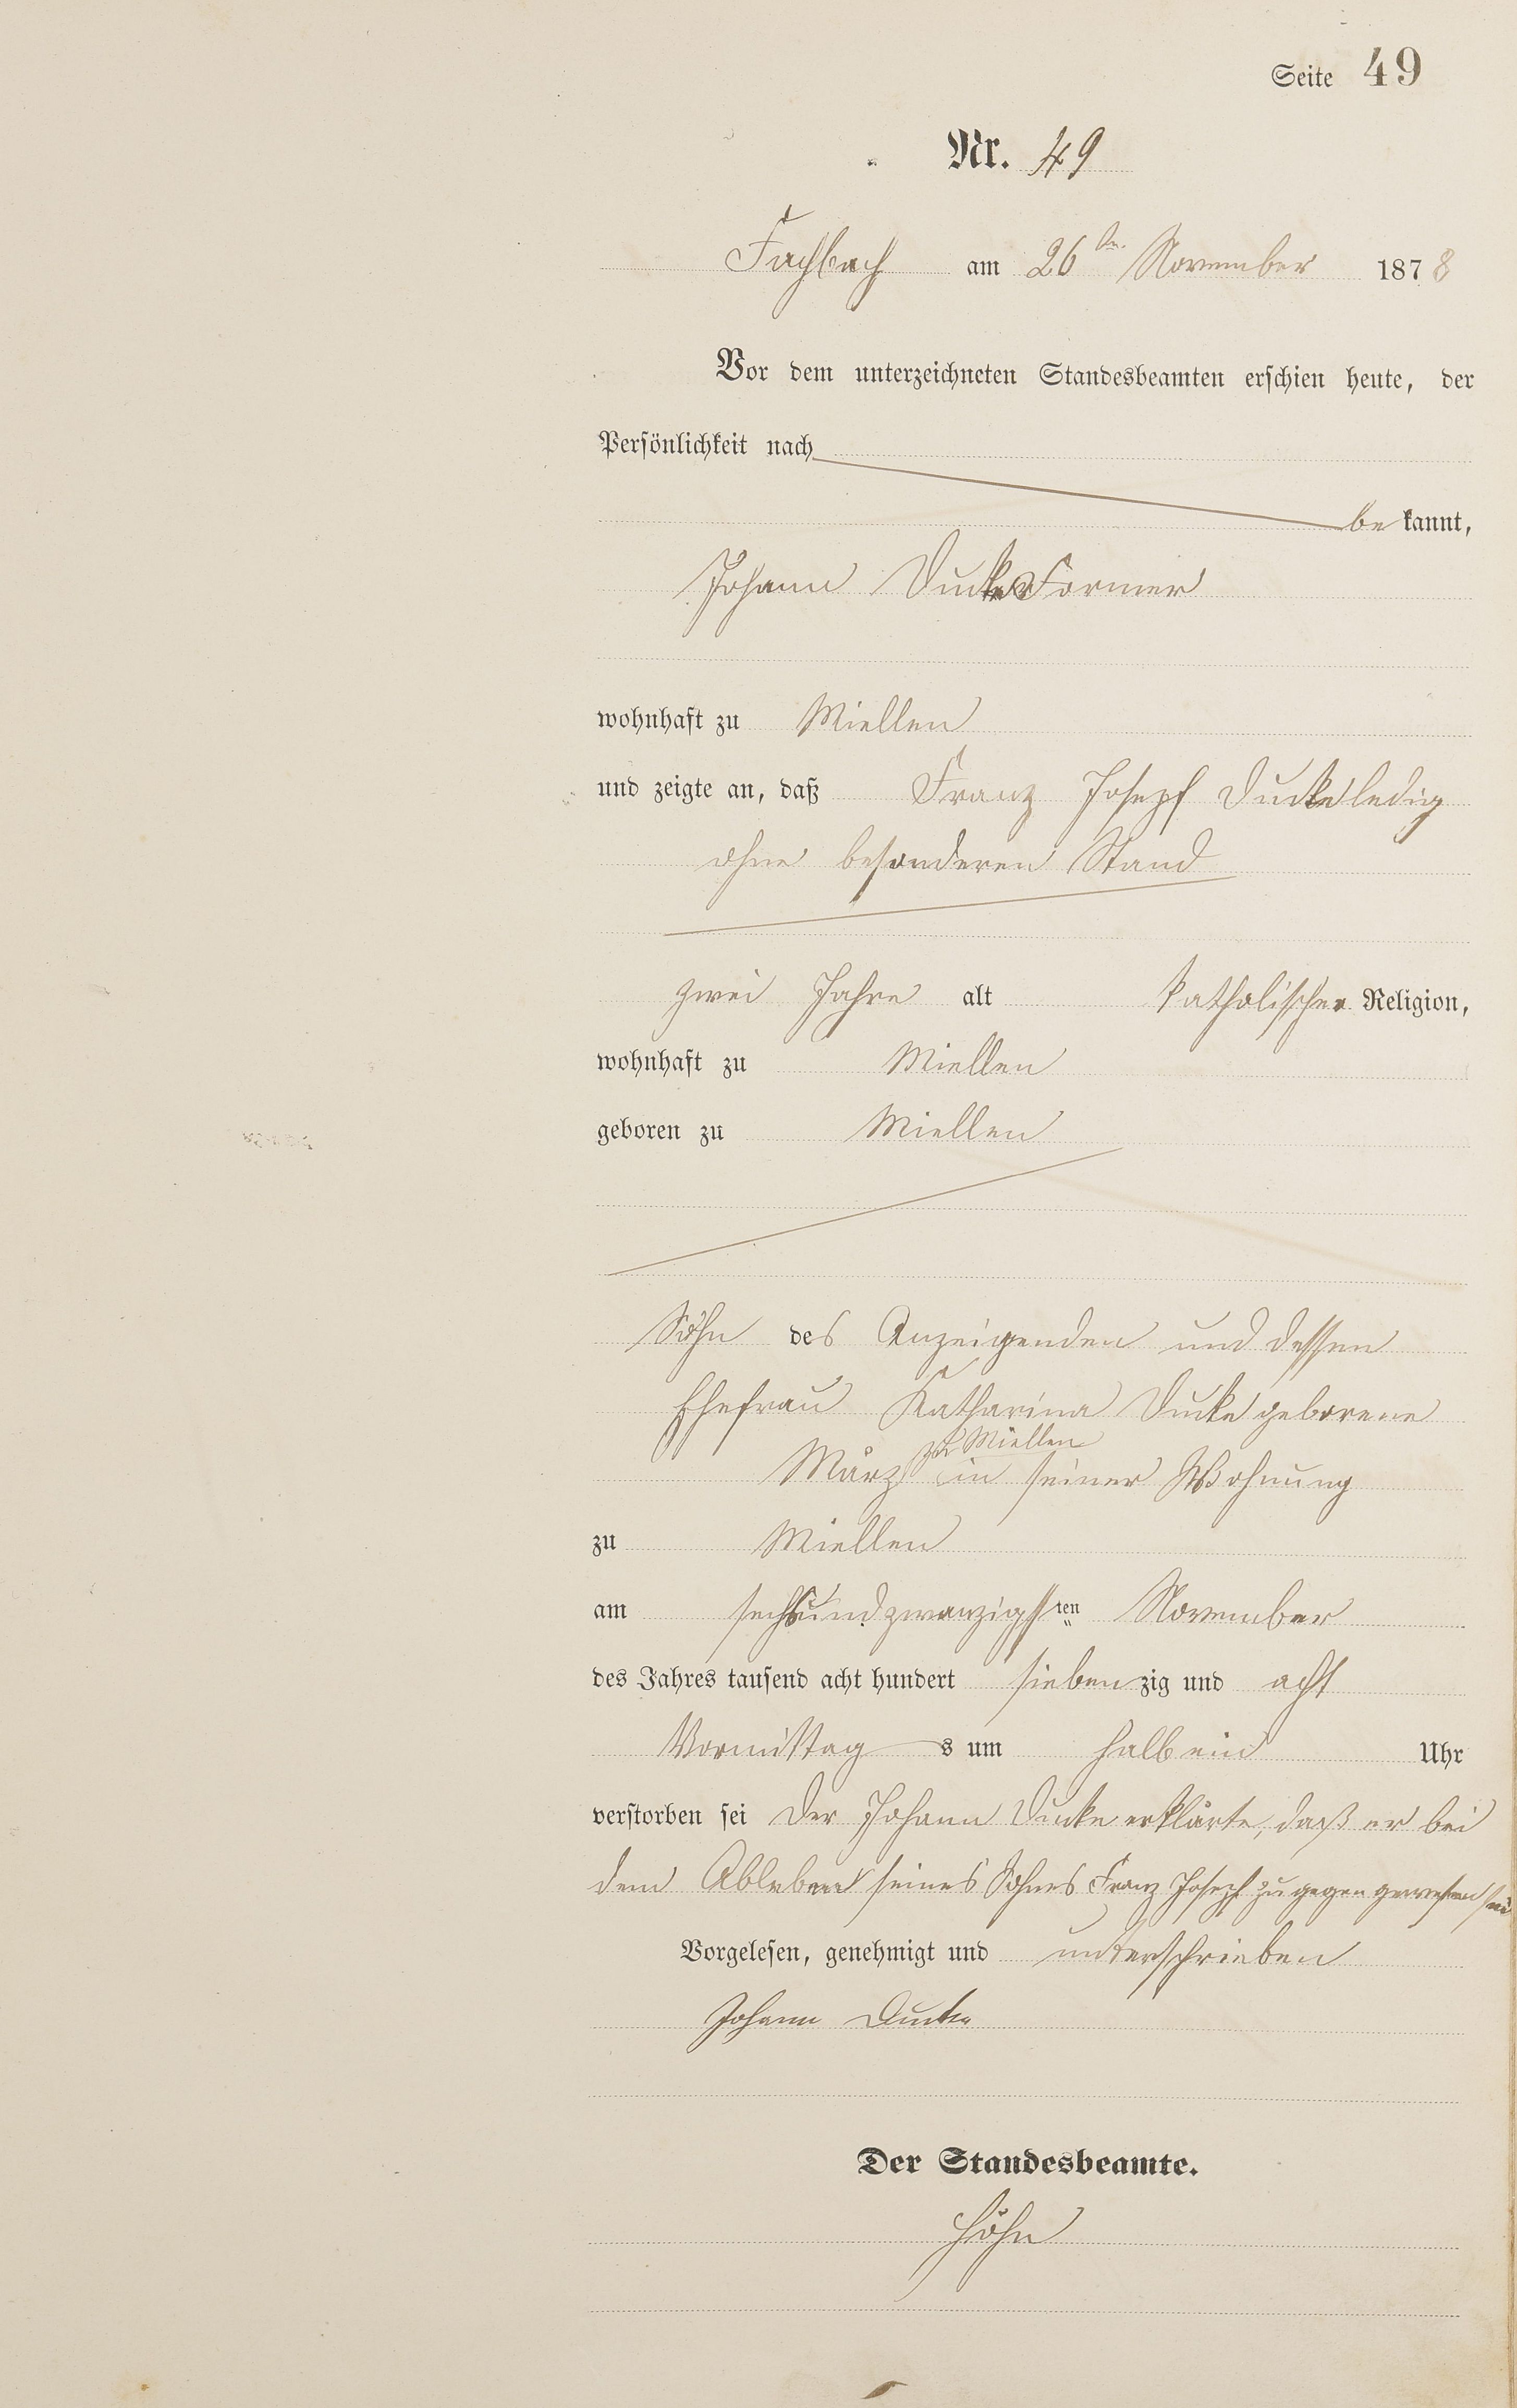 Seite 49
Nr. 49
Fachbach am 26ten November 1878
Vor dem unterzeichneten Standesbeamten erschien heute, der
Persönlichkeit nach
bekannt,
Johann Ducke Former
wohnhaft zu Miellen
und zeigte an, daß Franz Joseph Ducke ledig
ohne besonderen Stand
zwei Jahre alt katholischer Religion,
wohnhaft zu Miellen
geboren zu Miellen
Sohn des Anzeigenden und dessen
Ehefrau Katharina Ducke geborene
zu Miellen
März in seiner Wohnung
zu Miellen
am sechsundzwanzigsten November
des Jahres tausend acht hundert siebenzig und acht
Vormittags um halb ein Uhr
verstorben sei Der Johann Ducke erklärte, daß er bei
dem Ableben seines Sohnes Franz Joseph zugegen gewesen sei
Vorgelesen, genehmigt und unterschrieben
Johann Ducke
Der Standesbeamte.
Höhn